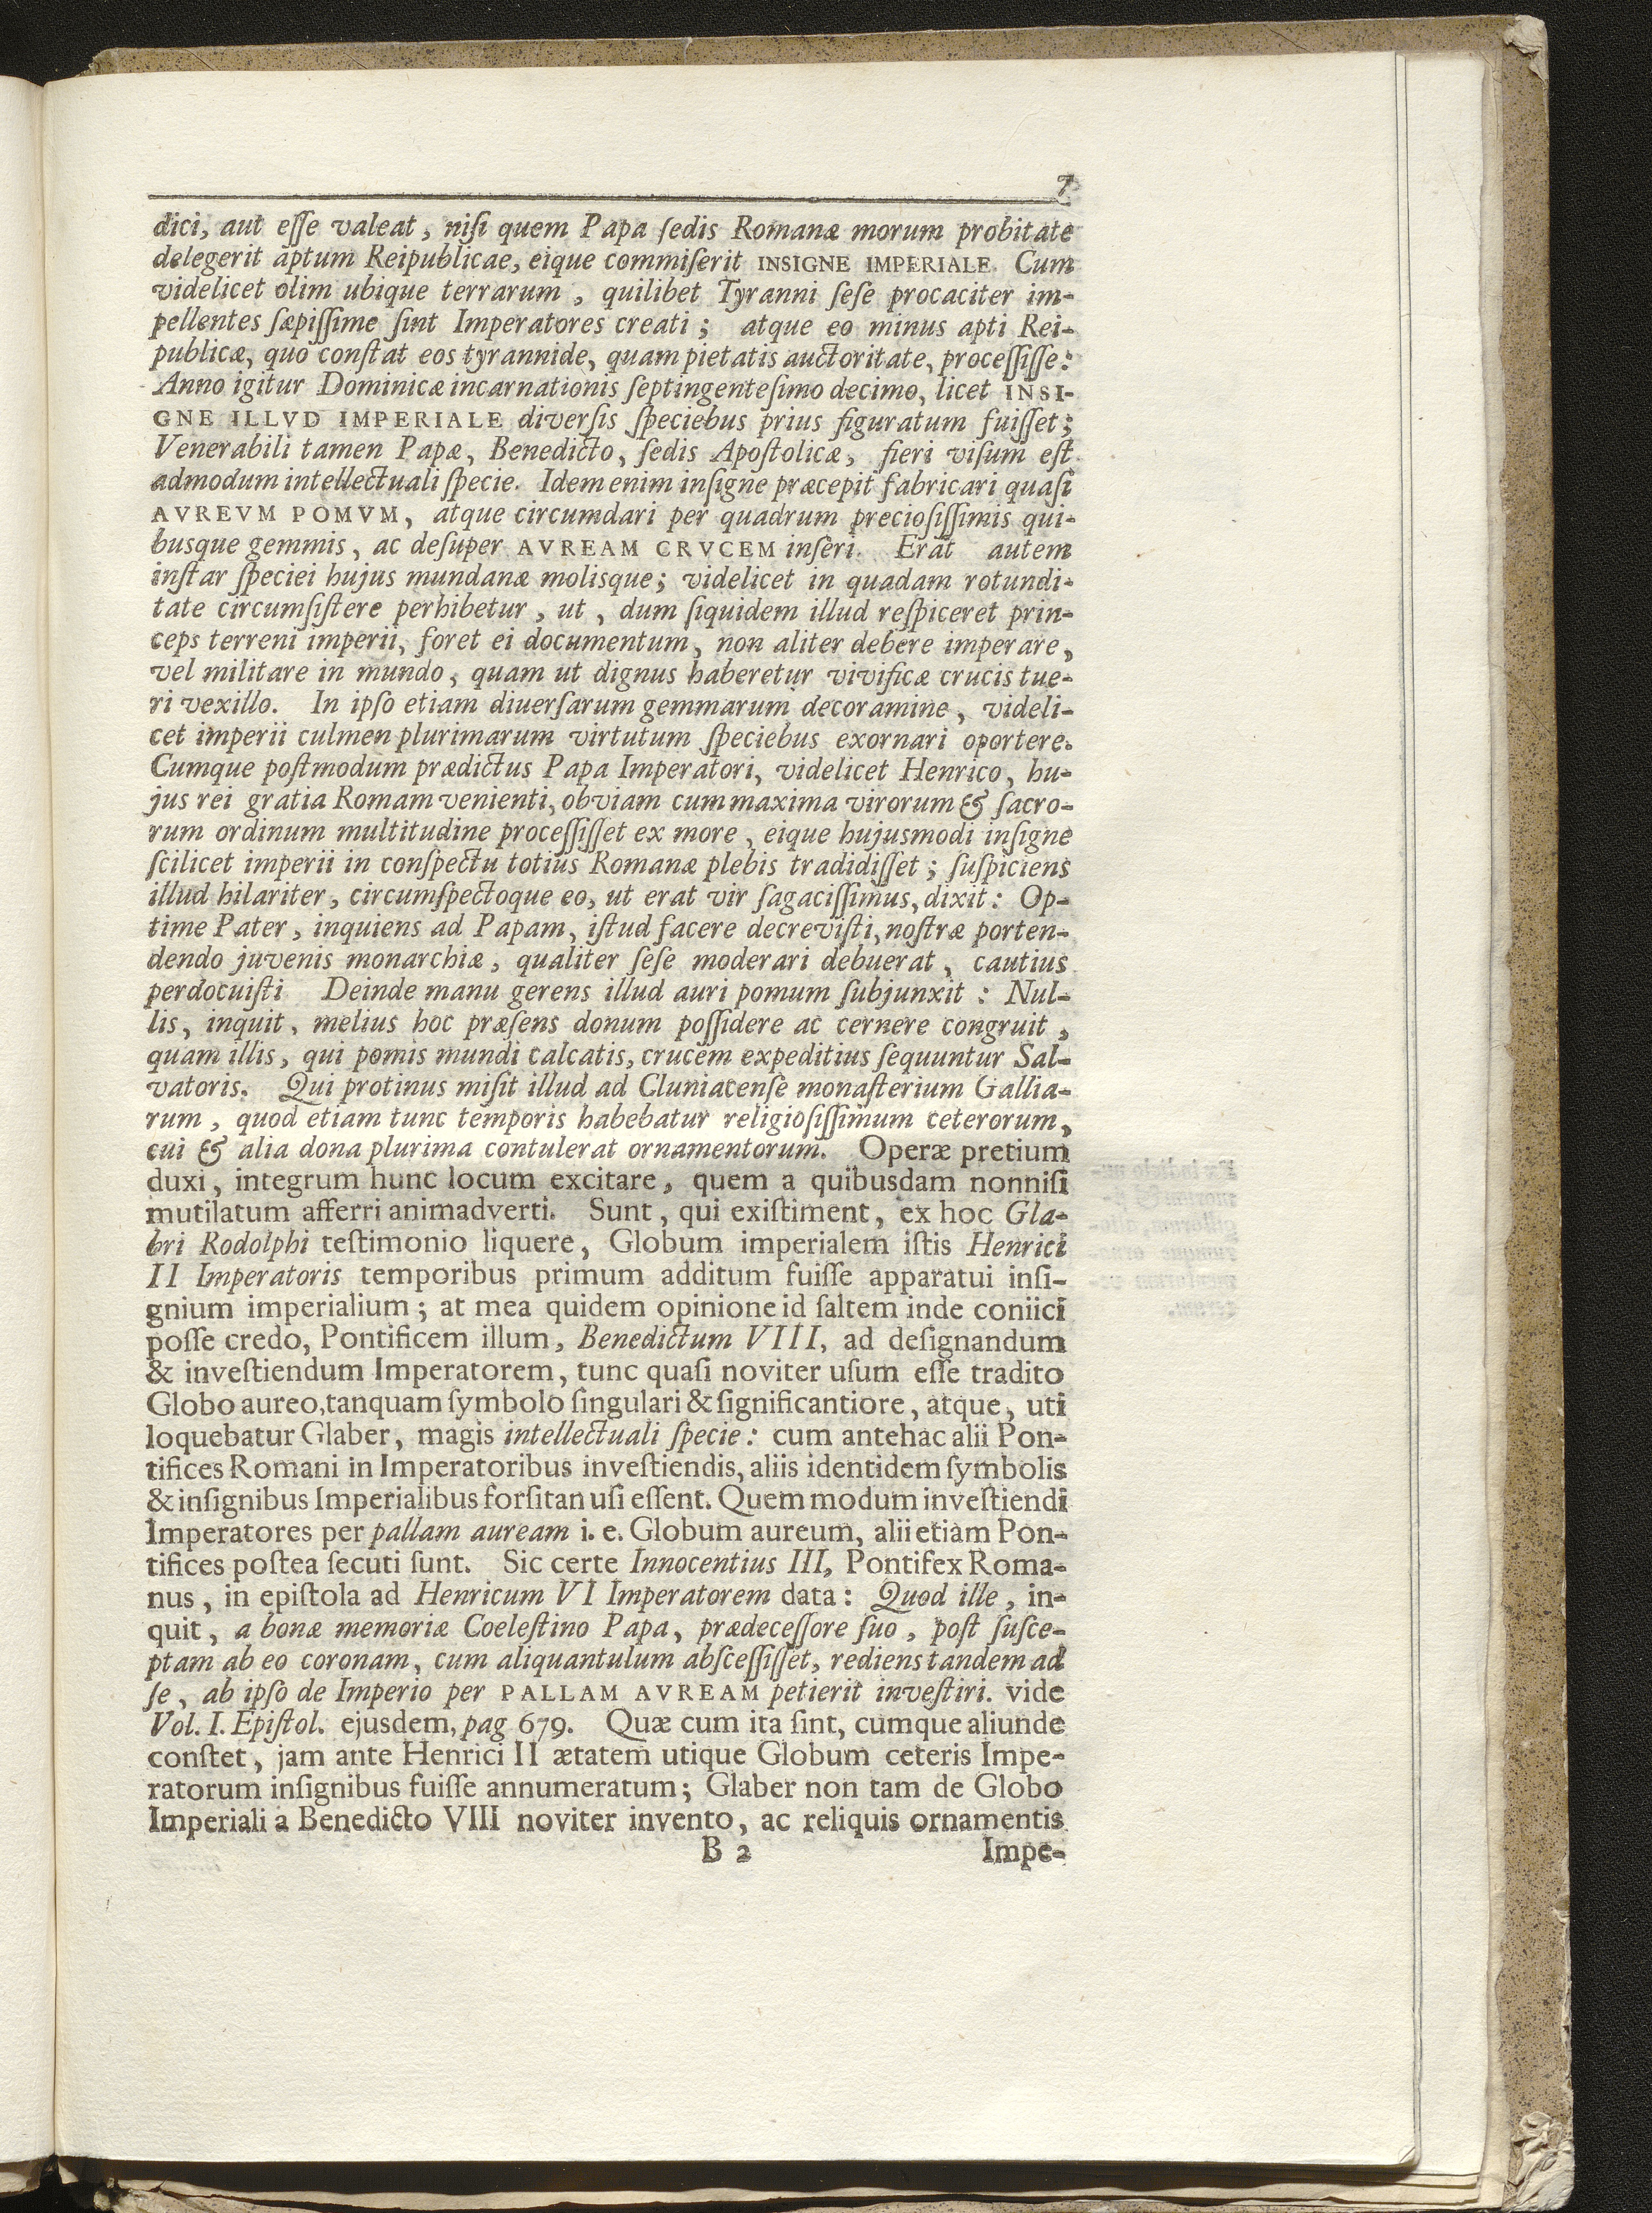 7
dici, aut eſſe valeat, niſi quem Papa ſedis Romanæ morum probitate
delegerit aptum Reipublicae, eique commiſerit INSIGNE IMPERIALE. Cum
videlicet olim ubique terrarum, quilibet Tyranni ſeſe procaciter im-
pellentes ſæpiſſime ſint Imperatores creati; atque eo minus apti Rei-
publicæ, quo conſtat eos tyrannide, quam pietatis auctoritate, proceſſiſſe:
Anno igitur Dominicæ incarnationis ſeptingenteſimo decimo, licet INSI-
GNE ILLVD IMPERIALE diverſis ſpeciebus prius figuratum fuiſſet;
Venerabili tamen Papæ, Benedicto, ſedis Apoſtolicæ, fieri viſum eſt
admodum intellectuali ſpecie. Idem enim inſigne præcepit fabricari quaſi
AVREVM POMVM, atque circumdari per quadrum precioſiſſimis qui-
busque gemmis, ac deſuper AVREAM CRVCEM inſeri. Erat autem
inſtar ſpeciei hujus mundanæ molisque; videlicet in quadam rotundi-
tate circumſiſtere perhibetur, ut, dum ſiquidem illud reſpiceret prin-
ceps terreni imperii, foret ei documentum, non aliter debere imperare,
vel militare in mundo, quam ut dignus haberetur vivificæ crucis tue-
ri vexillo. In ipſo etiam diuerſarum gemmarum decoramine, videli-
cet imperii culmen plurimarum virtutum ſpeciebus exornari oportere.
Cumque poſtmodum prædictus Papa Imperatori, videlicet Henrico, hu-
jus rei gratia Romam venienti, obviam cum maxima virorum & ſacro-
rum ordinum multitudine proceſſiſſet ex more, eique hujusmodi inſigne
ſcilicet imperii in conſpectu totius Romanæ plebis tradidiſſet; ſuſpiciens
illud hilariter, circumſpectoque eo, ut erat vir ſagaciſſimus, dixit: Op-
time Pater, inquiens ad Papam, iſtud facere decreviſti, noſtræ porten-
dendo juvenis monarchiæ, qualiter ſeſe moderari debuerat, cautius
perdocuiſti Deinde manu gerens illud auri pomum ſubjunxit: Nul-
lis, inquit, melius hoc præſens donum poſſidere ac cernere congruit,
quam illis, qui pomis mundi calcatis, crucem expeditius ſequuntur Sal-
vatoris. Qui protinus miſit illud ad Cluniacenſe monaſterium Gallia-
rum, quod etiam tunc temporis habebatur religioſiſſimum ceterorum,
cui & alia dona plurima contulerat ornamentorum. Operæ pretium
duxi, integrum hunc locum excitare, quem a quibusdam nonniſi
mutilatum afferri animadverti. Sunt, qui exiſtiment, ex hoc Gla-
bri Rodolphi teſtimonio liquere, Globum imperialem iſtis Henrici
II Imperatoris temporibus primum additum fuiſſe apparatui inſi-
gnium imperialium; at mea quidem opinione id ſaltem inde coniici
poſſe credo, Pontificem illum, Benedictum VIII, ad deſignandum
& inveſtiendum Imperatorem, tunc quaſi noviter uſum eſſe tradito
Globo aureo, tanquam ſymbolo ſingulari & ſignificantiore, atque, uti
loquebatur Glaber, magis intellectuali ſpecie: cum antehac alii Pon-
tifices Romani in Imperatoribus inveſtiendis, aliis identidem ſymbolis
& inſignibus Imperialibus forſitan uſi eſſent. Quem modum inveſtiendi
Imperatores per pallam auream i. e. Globum aureum, alii etiam Pon-
tifices poſtea ſecuti ſunt. Sic certe Innocentius III, Pontifex Roma-
nus, in epiſtola ad Henricum VI Imperatorem data: Quod ille, in-
quit, a bonæ memoriæ Coeleſtino Papa, prædeceſſore ſuo, poſt ſuſce-
ptam ab eo coronam, cum aliquantulum abſceſſiſſet, rediens tandem ad
ſe, ab ipſo de Imperio per PALLAM AVREAM petierit inveſtiri. vide
Vol. I. Epiſtol. ejusdem, pag 679. Quæ cum ita ſint, cumque aliunde
conſtet, jam ante Henrici II ætatem utique Globum ceteris Impe-
ratorum inſignibus fuiſſe annumeratum; Glaber non tam de Globo
Imperiali a Benedicto VIII noviter invento, ac reliquis ornamentis
B 2 Impe-